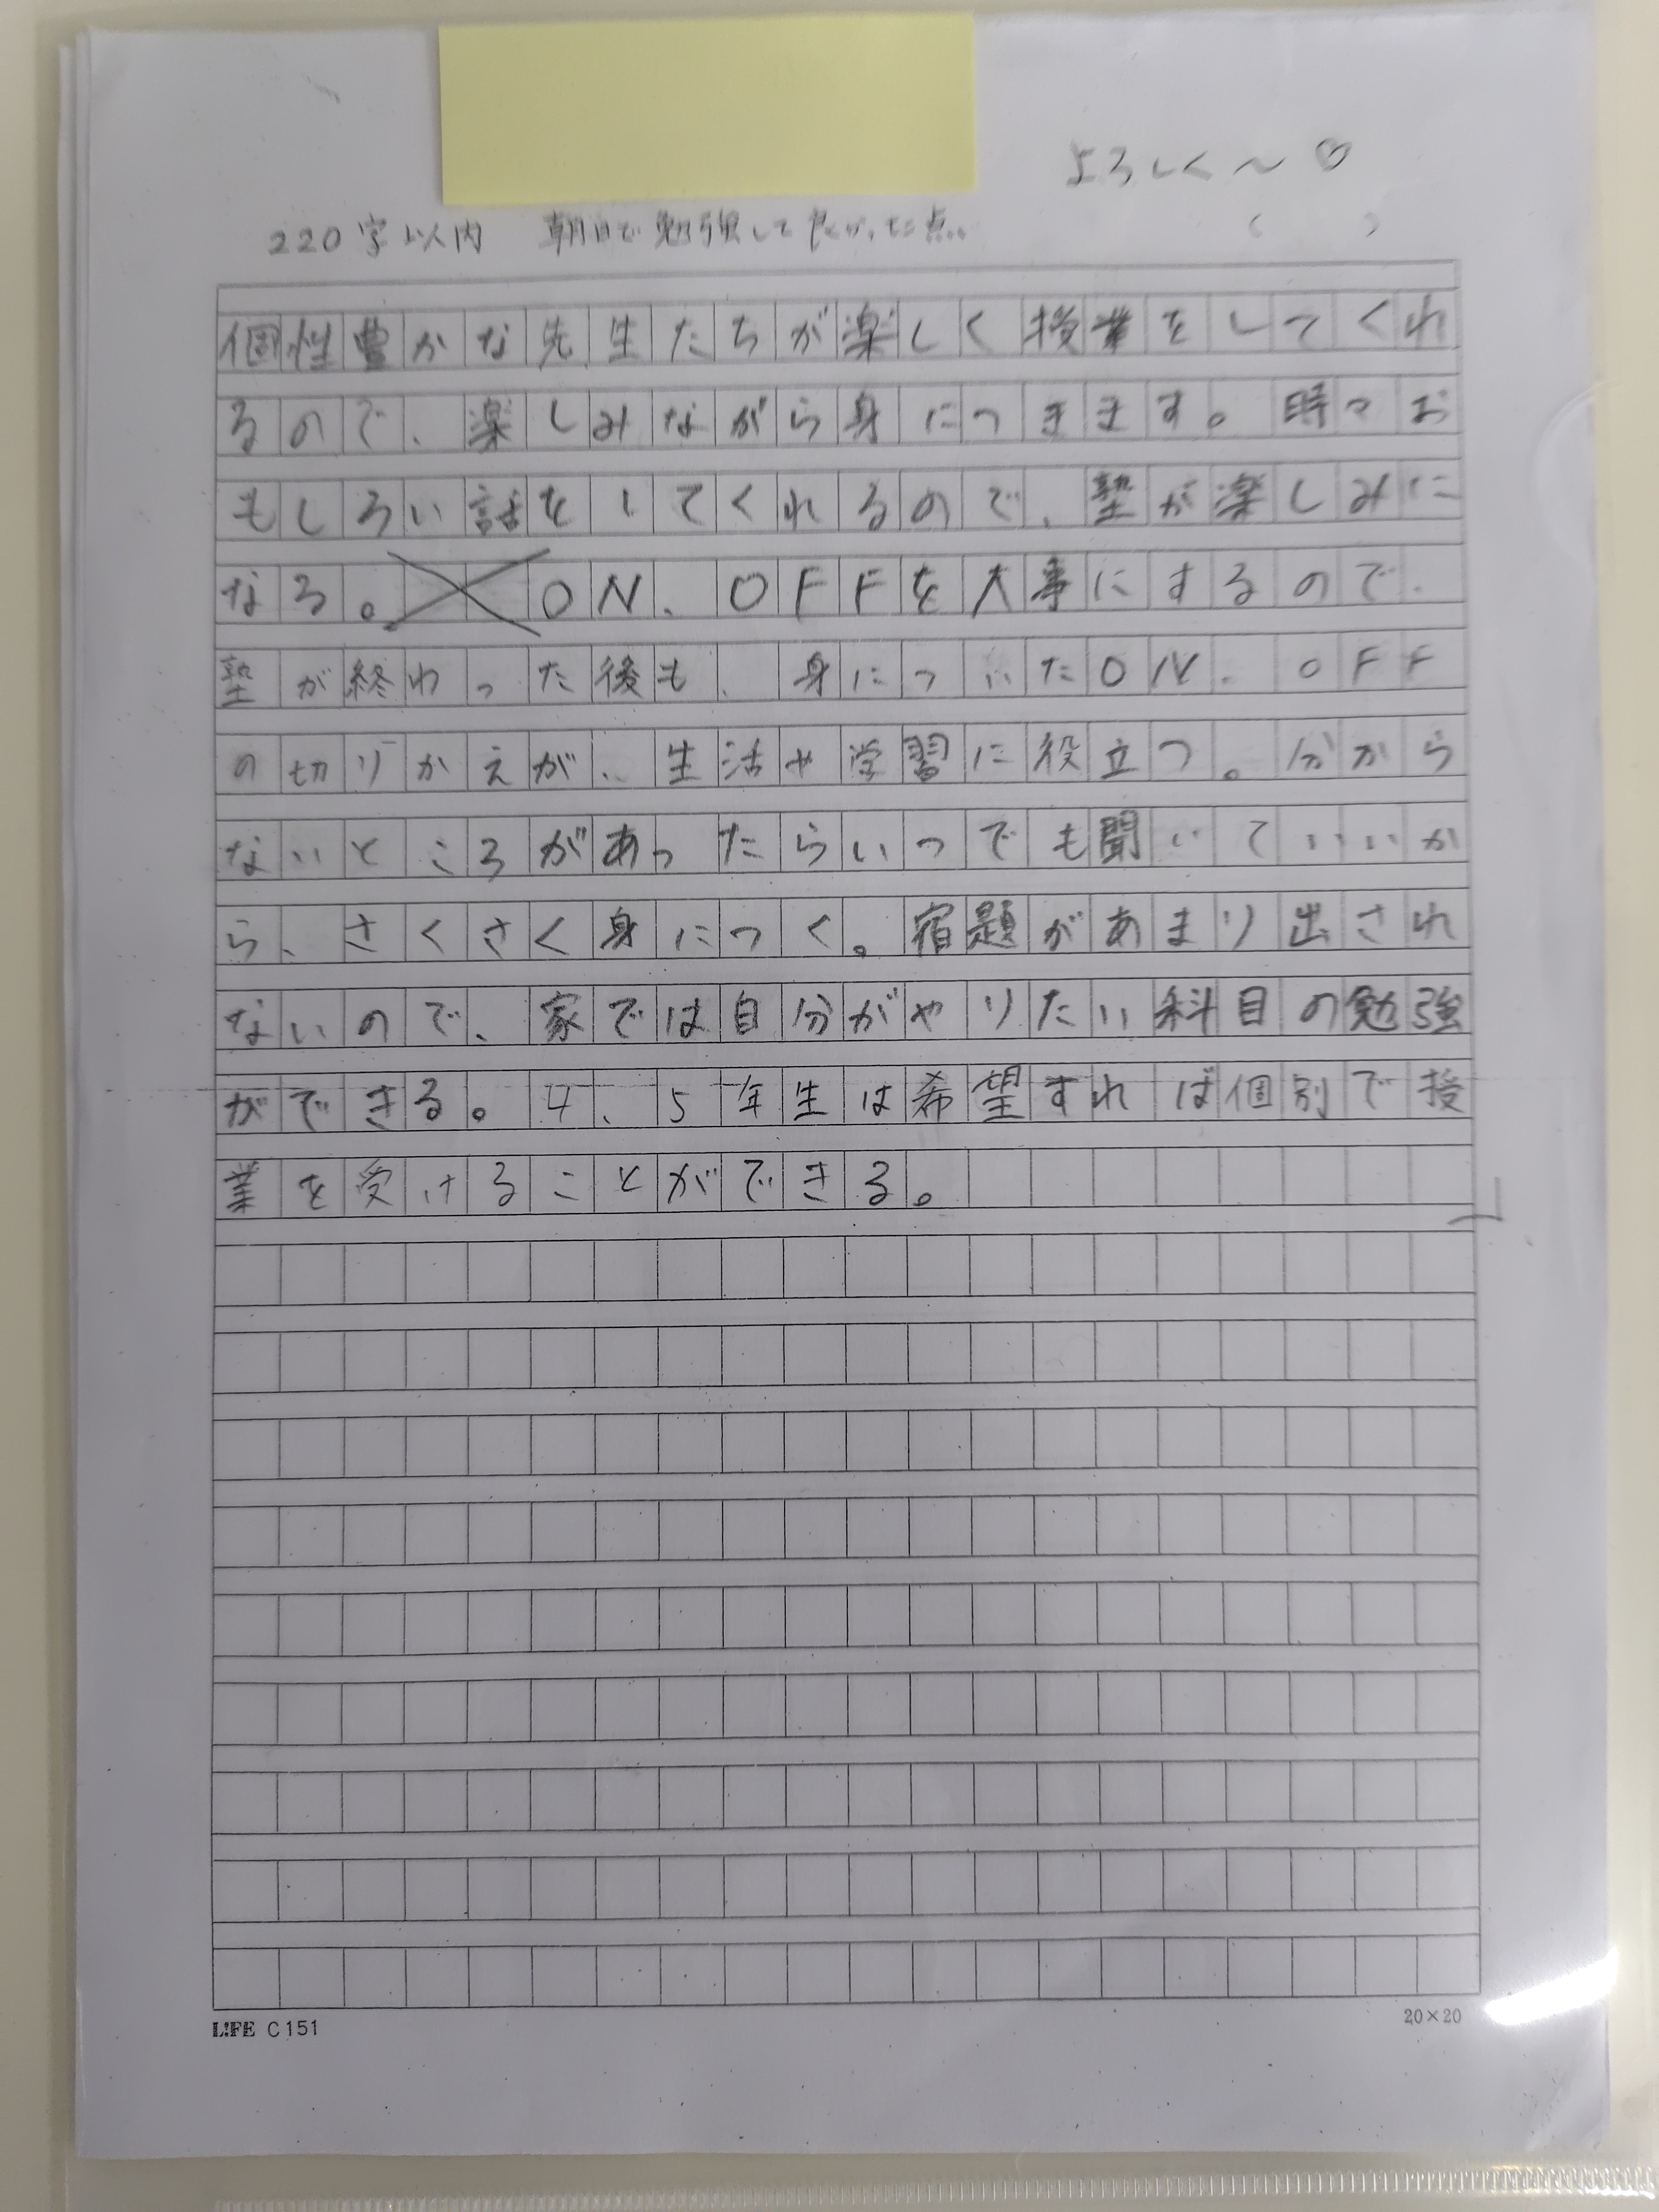 よろしく〜♡
220字以内 朝日で勉強して良かった点
( )
個性豊かな先生たちが楽しく授業をしてくれ
るので、楽しみながら身につきます。時々お
もしろい話をしてくれるので、塾が楽しみに
なる。ON、OFFを大事にするので、
塾が終わった後も、身についたON、OFF
の切りかえが、生活や学習に役立つ。分から
ないところがあったらいつでも聞いていいか
ら、さくさく身につく。宿題があまり出され
ないので、家では自分がやりたい科目の勉強
ができる。4、5年生は希望すれば個別で授
業を受けることができる。
LIFE C151
20×20